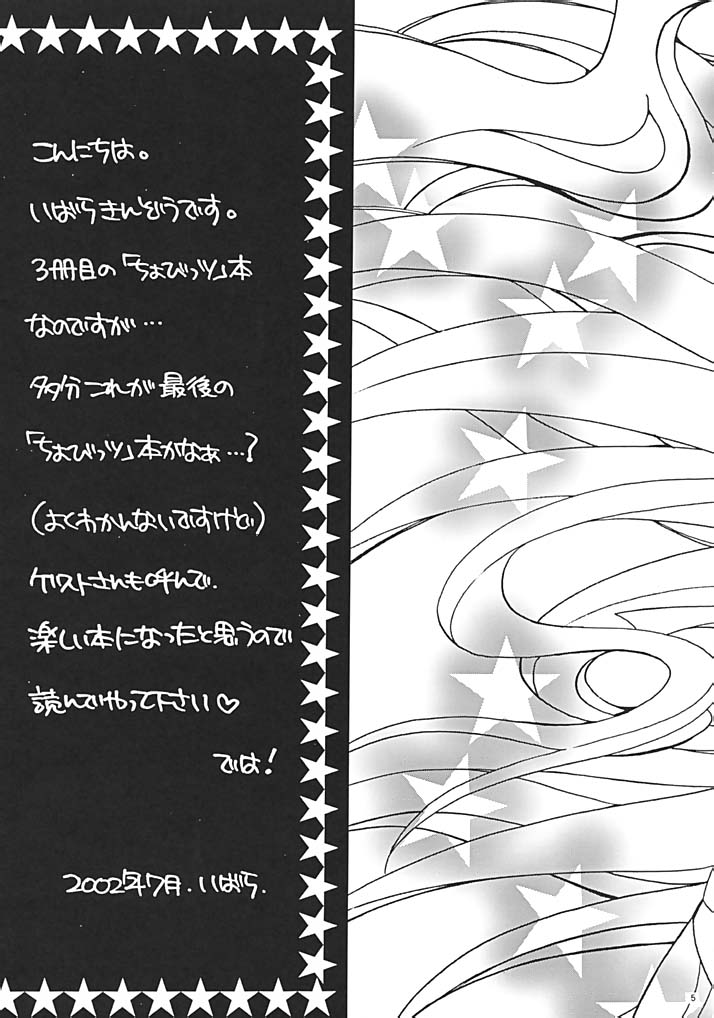 こんにちは。
いばらきんどうです。
3冊目の「ちょびっツ」本
なのですが…
多分これが最後の
「ちょびっツ」本かなぁ…?
(よくわかんないですけど)
ゲストさんも呼んで、
楽しい本になったと思うので
読んでやって下さい♡
では!
2002年7月.いばら.
5